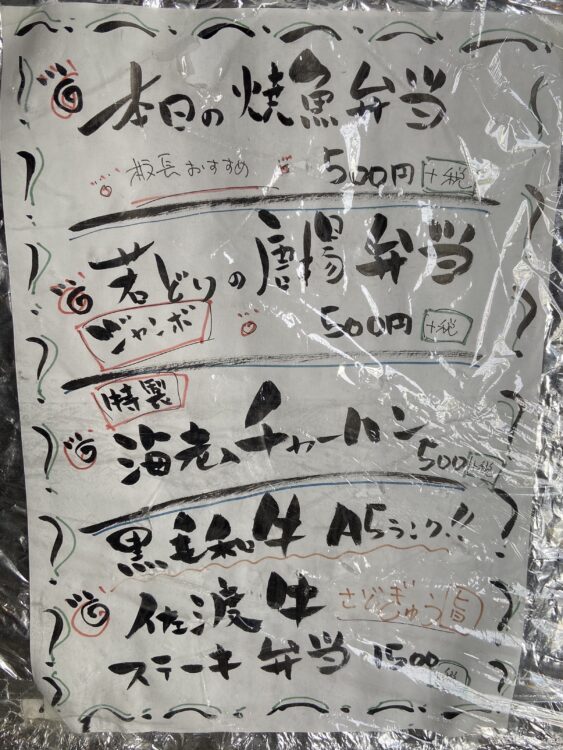 本日の焼魚弁当
板長おすすめ 500円 +税
若どりの唐揚弁当
ジャンボ 500円 +税
特製
海老チャーハン 500 +税
黒毛和牛 A5ランク!!
佐渡牛 さどぎゅう
ステーキ弁当 1500 +税